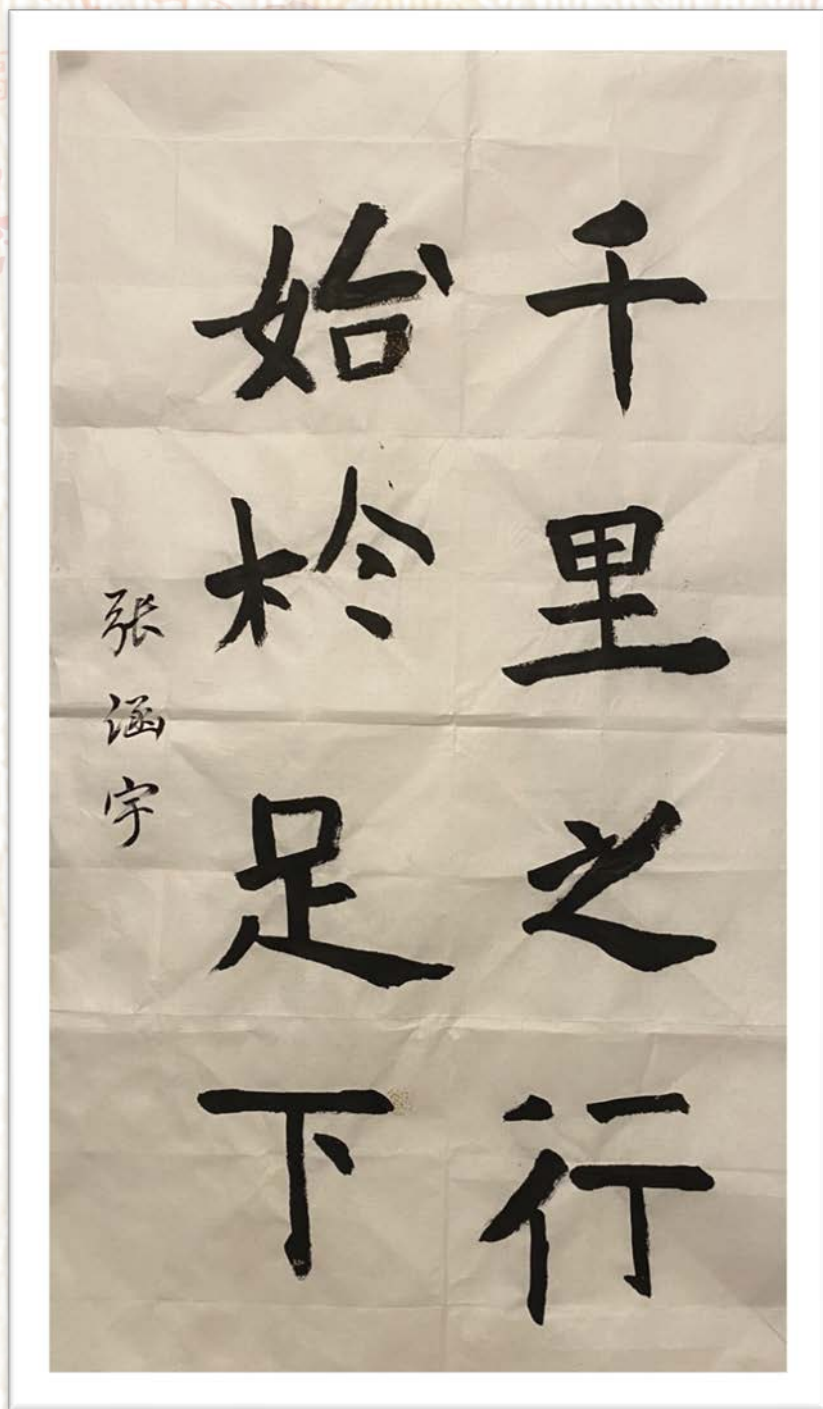 千里之行
始於足下
张涵宇